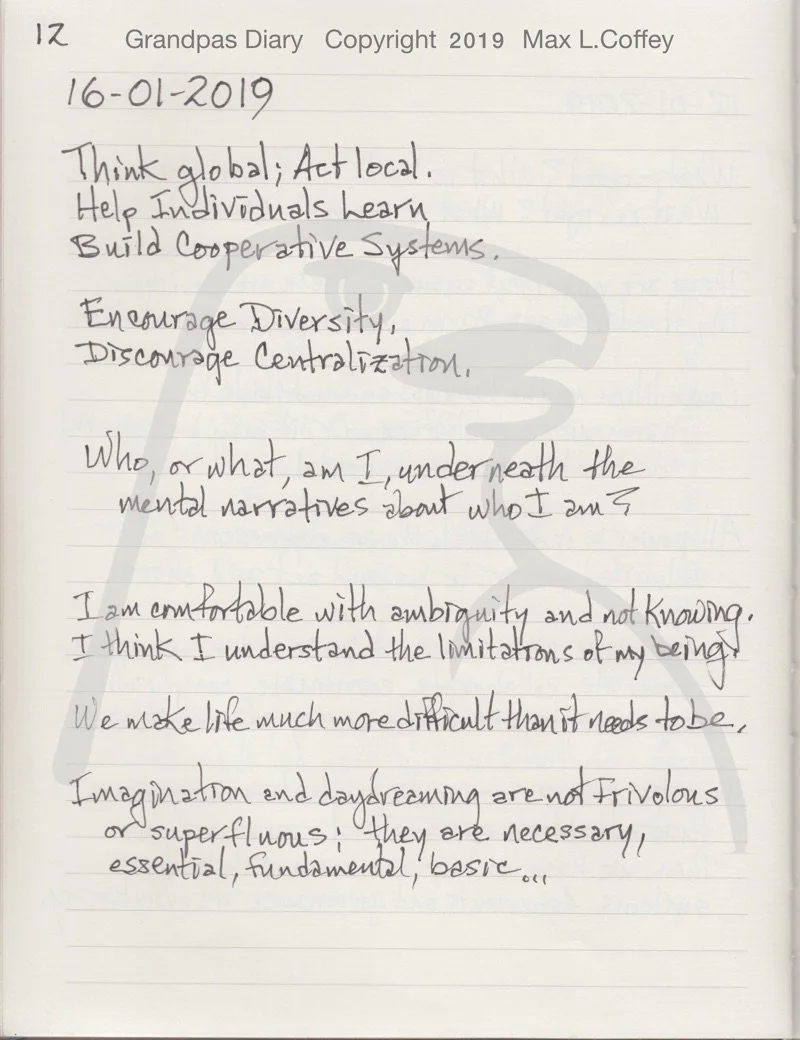 12 Grandpas Diary Copyright 2019 Max L.Coffey
16-01-2019
Think global; Act local.
Help Individuals Learn
Build Cooperative Systems.
Encourage Diversity,
Discourage Centralization.
Who, or what, am I, underneath the
mental narratives about who I am?
I am comfortable with ambiguity and not Knowing.
I think I understand the limitations of my being?
We make life much more difficult than it needs to be.
Imagination and daydreaming are not Frivolous
or superfluous; they are necessary,
essential, fundamental, basic...